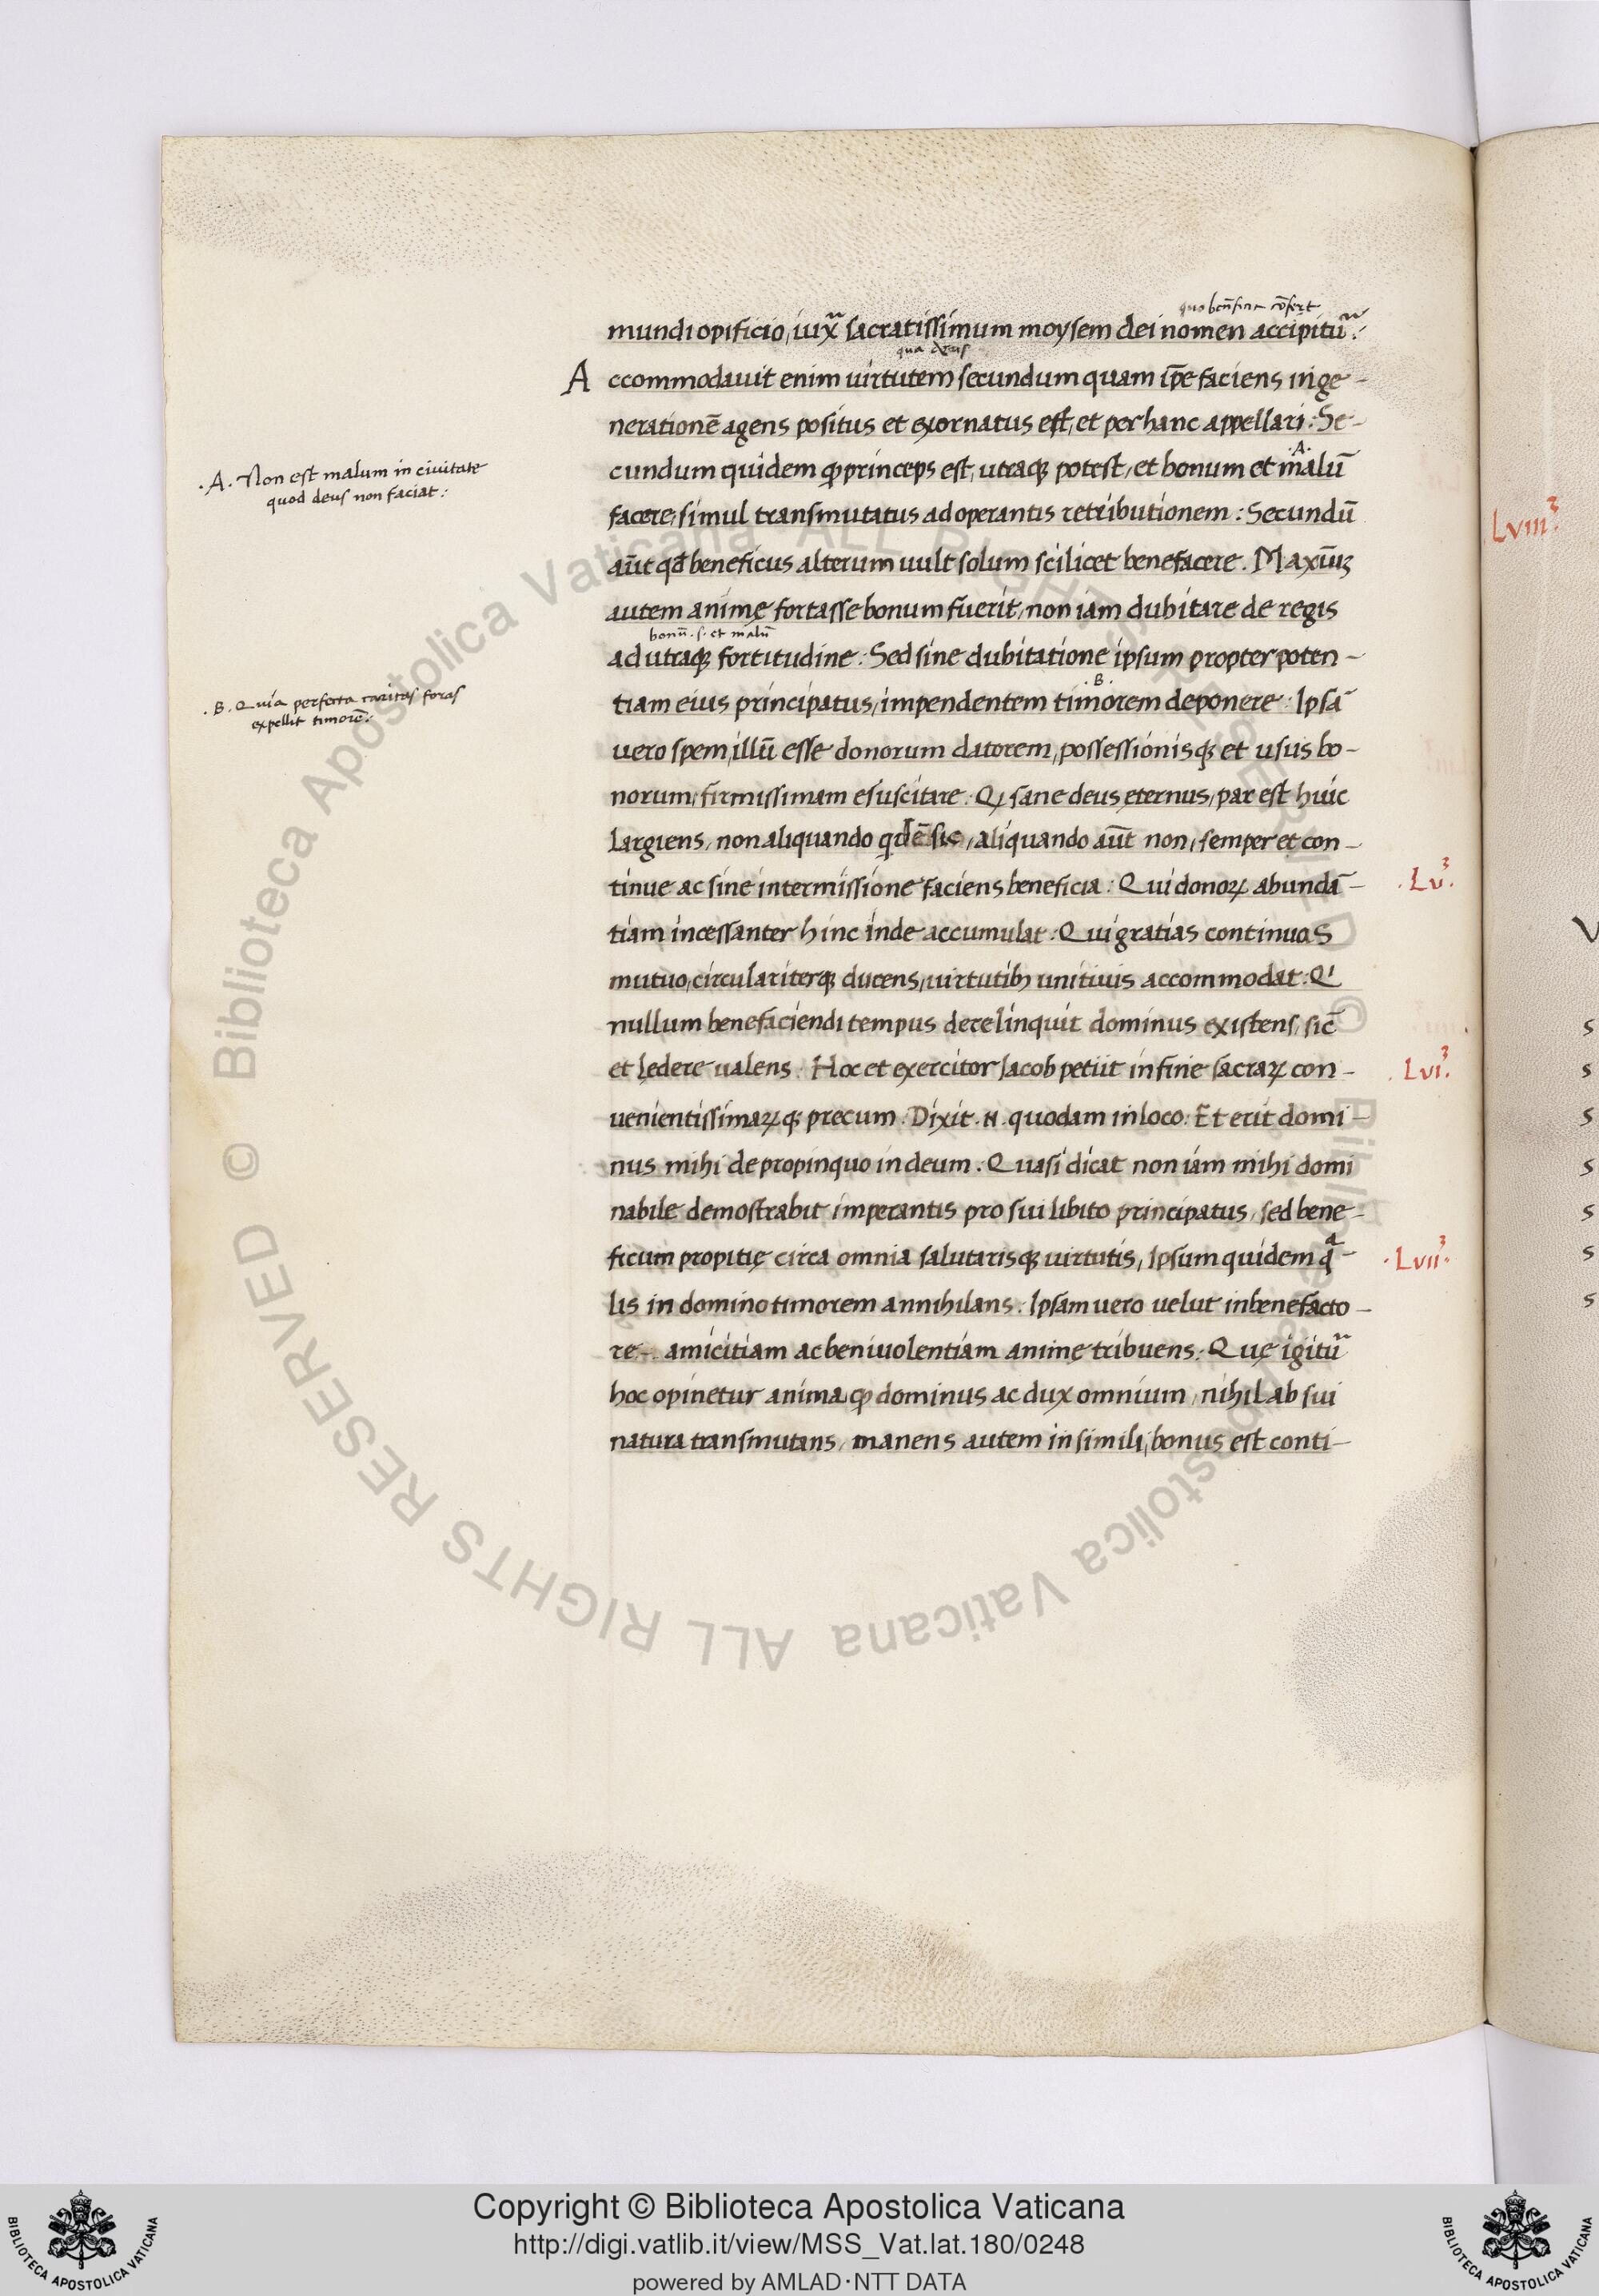 quo beñficia cõfert
mundi opificio, iuxᵃ sacratissimum moysem dei nomen accipitũ:
qua deus
Accommodauit enim uirtutem secundum quam ip̃e faciens in ge-
nerationẽ agens positus et exornatus est, et per hanc appellari: Se-
.A.
cundum quidem ꝙ princeps est, utraqꝫ potest, et bonum et malũ
.A. Non est malum in ciuitate
quod deus non faciat:
facere, simul transmutatus ad operantis retributionem: Secundũ
aũt qđ beneficus alterum uult solum scilicet benefacere. Maxiũꝫ
autem animę fortasse bonum fuerit, non iam dubitare de regis
bonũ .s. et malũ
ad utraqꝫ fortitudine: Sed sine dubitatione ipsum propter poten-
.B.
tiam eius principatus, impendentem timorem deponere: Ipsã
.B. Quia perfecta caritas foras
expellit timorẽ:
uero spem, illũ esse donorum datorem, possessionisqꝫ et usus bo-
norum, firmissimam esuscitare: Qꝫ sane deus ęternus, par est huic
largiens, non aliquando qdẽ sic, aliquando aũt non, semper et con-
tinue ac sine intermissione faciens beneficia: Qui donoꝝ abundã-
.Lv³.
tiam incessanter hinc inde accumulat: Qui gratias continuas
mutuo, circulariterqꝫ ducens, uirtutibꝫ unitiuis accommodat: Qi
nullum benefaciendi tempus derelinquit dominus existens, sic̃
et lędere ualens: Hoc et exercitor Jacob petiit in fine sacraꝝ con-
.Lvi³.
uenientissimaꝝqꝫ precum: Dixit .N. quodam in loco: Et erit domi-
nus mihi de propinquo in deum. Quasi dicat non iam mihi domi
nabile demostrabit imperantis pro sui libito principatus, sed bene-
ficum propitię circa omnia salutarisqꝫ uirtutis, Ipsum quidem qᵃ-
.Lvii³.
lis in domino timorem annihilans: Ipsam uero uelut in benefacto-
re-. amicitiam ac beniuolentiam animę tribuens: Quę igitũ
hoc opinetur anima, ꝙ dominus ac dux omnium, nihil ab sui
natura transmutans, manens autem in simili, bonus est conti-
Lviii³.
Copyright © Biblioteca Apostolica Vaticana
http://digi.vatlib.it/view/MSS_Vat.lat.180/0248
powered by AMLAD·NTT DATA
BIBLIOTECA APOSTOLICA VATICANA
BIBLIOTECA APOSTOLICA VATICANA
© Biblioteca Apostolica Vaticana ALL RIGHTS RESERVED © Biblioteca Apostolica Vaticana ALL RIGHTS RESERVED